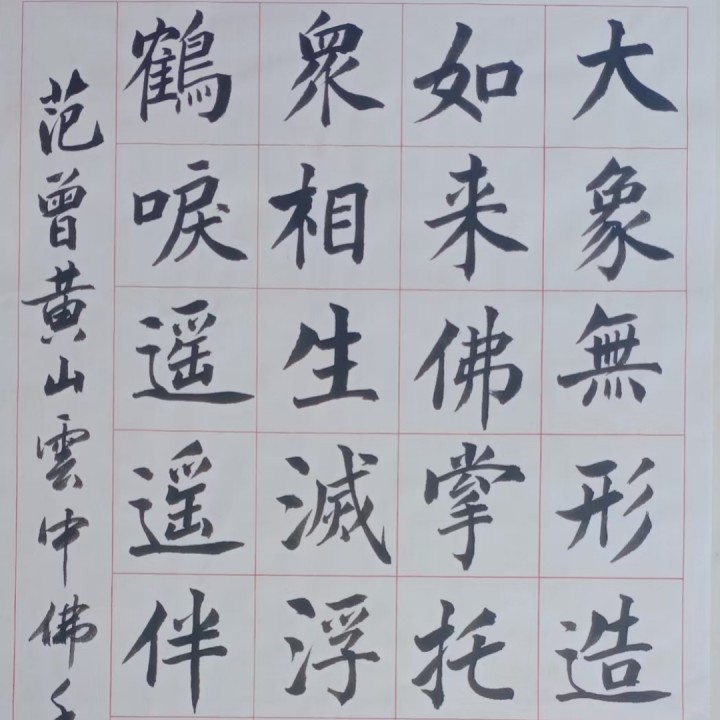 大象無形造
如来佛掌托
眾相生滅浮
鶴唳遥遥伴
范曾黃山雲中佛